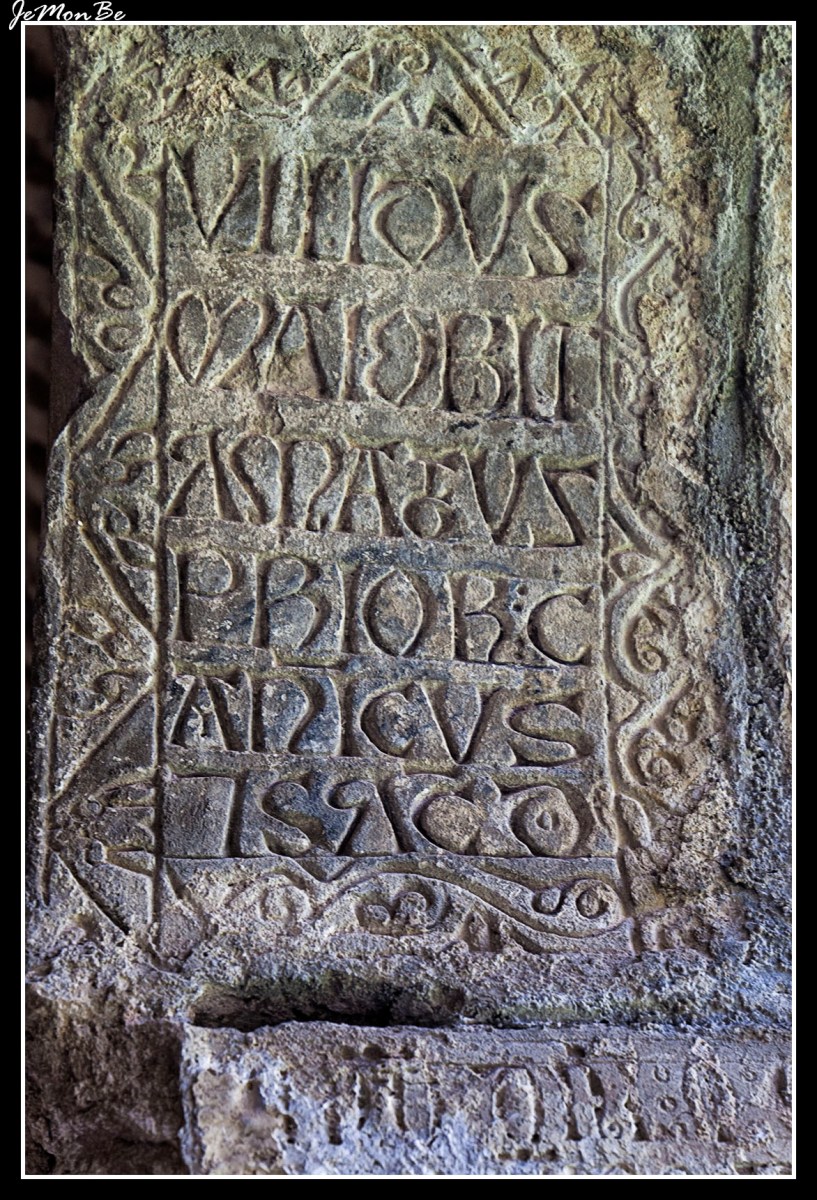 JeMonBe
VIIIDVS
MAIOBIIT
ASNATVS
PRIOR:C
ANICVS
ISACO